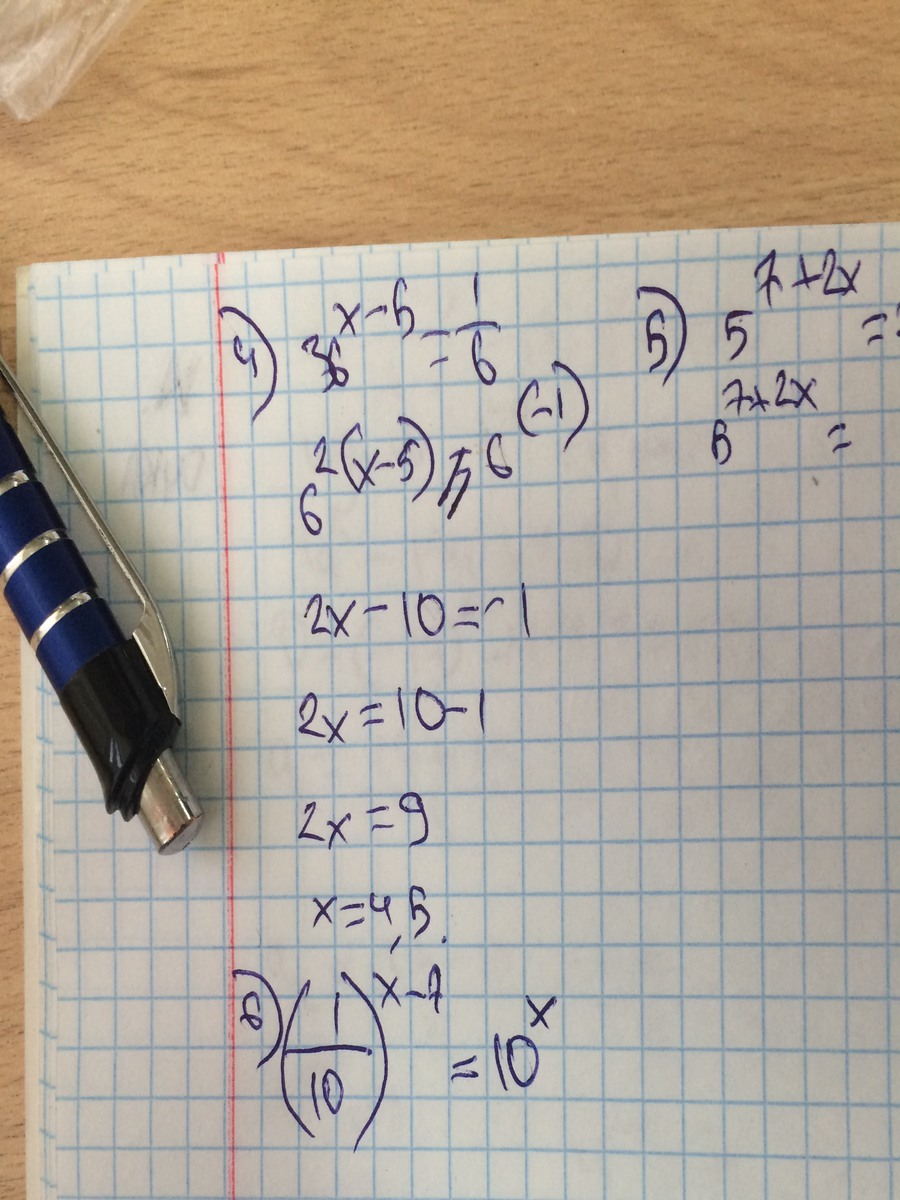 4) 36^(x-5) = 1/6
6^(2(x-5)) = 6^((-1))
2x - 10 = -1
2x = 10 - 1
2x = 9
x = 4,5.
6) (1/10)^(x-7) = 10^x
5) 5^(7+2x) =
5^(7+2x) =